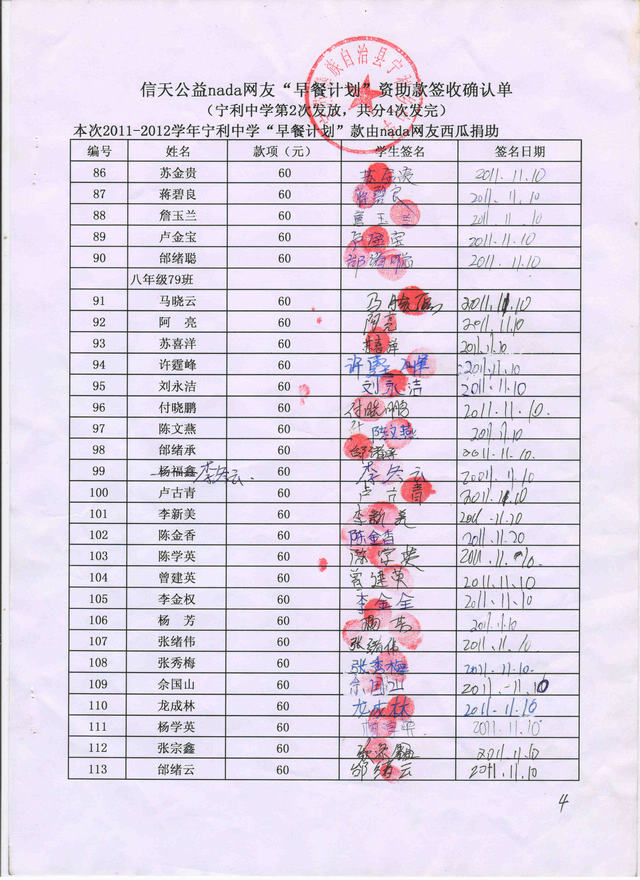 族自治县宁
信天公益nada网友“早餐计划”资助款签收确认单
（宁利中学第2次发放，共分4次发完）
本次2011-2012学年宁利中学“早餐计划”款由nada网友西瓜捐助
编号 姓名 款项（元） 学生签名 签名日期
86 苏金贵 60 2011.11.10
87 蒋碧良 60 蒋碧良 2011.11.10
88 詹玉兰 60 詹玉兰 2011.11.10
89 卢金宝 60 卢金宝 2011.11.10
90 邰绪聪 60 2011.11.10
八年级79班
91 马晓云 60 2011.11.10
92 阿 亮 60 阿亮 2011.11.10
93 苏喜洋 60 苏喜洋 2011.11.10
94 许霆峰 60 2011.11.10
95 刘永洁 60 刘永洁 2011.11.10
96 付晓鹏 60 付晓鹏 2011.11.10.
97 陈文燕 60 陈文燕 2011.11.10
98 邰绪承 60 2011.11.10.
99 杨福鑫 60 2011.11.10
100 卢古青 60 卢古青 2011.11.10
101 李新美 60 李新美
102 陈金香 60 陈金香 2011.11.20
103 陈学英 60 陈学英
104 曾建英 60 曾建英 2011.11.10
105 李金权 60 李金全 2011.11.10
106 杨 芳 60 杨芳 2011.11.10
107 张绪伟 60 张绪伟 2011.11.10
108 张秀梅 60 张秀梅 2011.11.10.
109 佘国山 60 佘国山 2011.-11.10
110 龙成林 60 龙成林 2011-11.10
111 杨学英 60 2011.11.10
112 张宗鑫 60 2011.11.10
113 邰绪云 60 邰绪云 2011.11.10
4